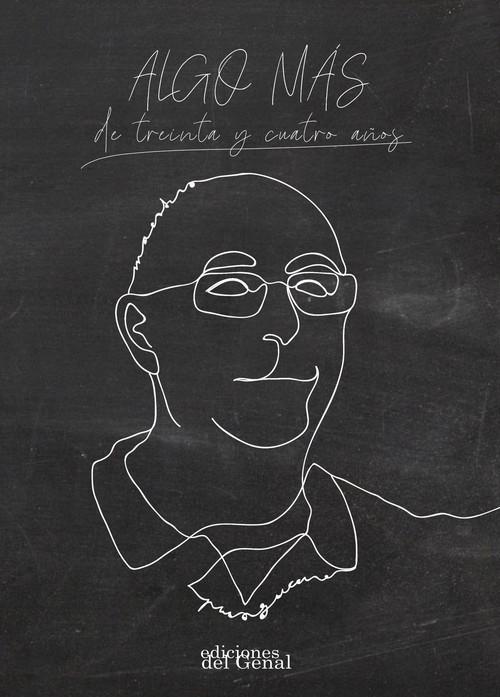 ALGO MÁS
de treinta y cuatro años
ediciones
del Genal